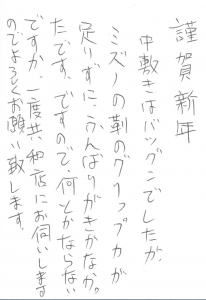 謹賀新年
中敷きはバツグンでしたが、
ミズノの靴のグリップ力が
足りずに、ふんばりがきかなか
たです。ですので、何とかならない
ですが、一度共和店にお伺いします
のでよろしくお願い致します。